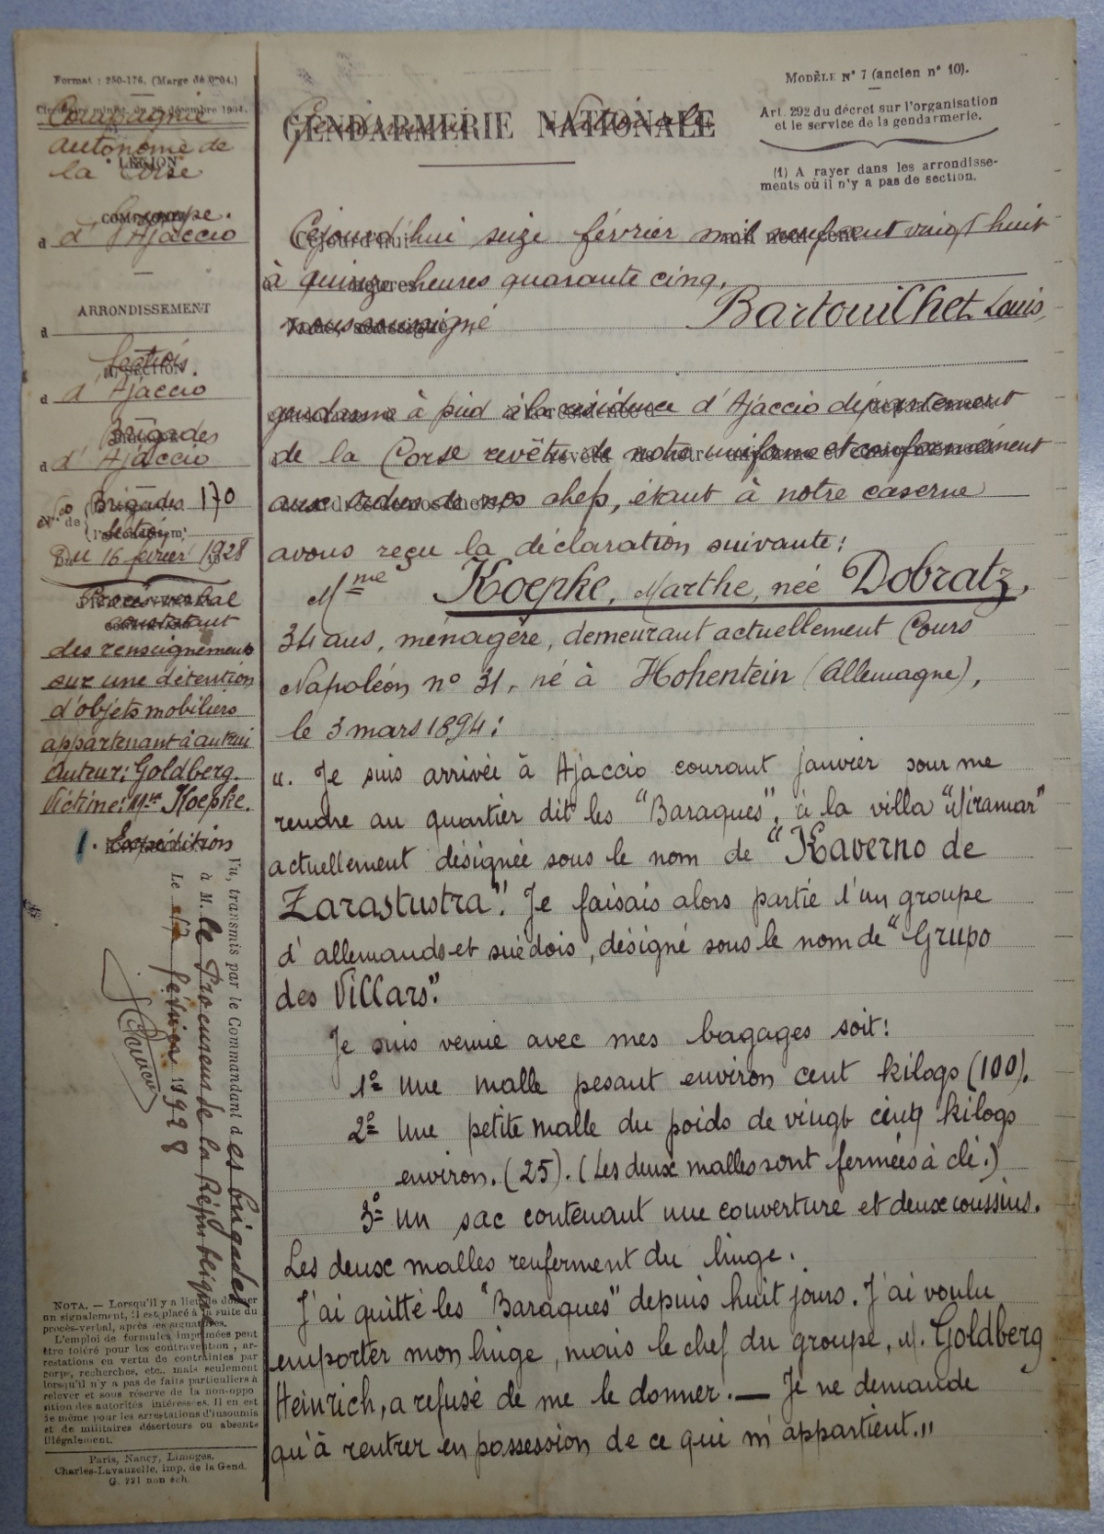 Format : 250-176. (Marge de 0m04.)
Circulaire minist. du 26 décembre 1904.
Compagnie
autonome de
LÉGION
la Corse
Groupe.
à d'Ajaccio
ARRONDISSEMENT
à
Section.
à d'Ajaccio
Brigades
à d'Ajaccio
Nos de
Brigades 170
Section
Du 16 février 1928
Procès-verbal
constatant
des renseignements
sur une détention
d'objets mobiliers
appartenant à autrui
Auteur: Goldberg.
Victime: Mme Koepke.
1. Expédition
Vu, transmis par le Commandant des brigades
à M. le Procureur de la République
Le 17 février 1928
NOTA. — Lorsqu'il y a lieu de donner
un signalement, il est placé à la suite du
procès-verbal, après les signatures.
L'emploi de formules imprimées peut
être toléré pour les contravention, ar-
restations en vertu de contraintes par
corps, recherches, etc., mais seulement
lorsqu'il n'y a pas de faits particuliers à
relever et sous réserve de la non-oppo
sition des autorités intéressées. Il en est
de même pour les arrestations d'insoumis
et de militaires déserteurs ou absents
illégalement.
Paris, Nancy, Limoges.
Charles-Lavauzelle, imp. de la Gend.
G. 221 non éch.
MODÈLE N° 7 (ancien n° 10).
Art. 292 du décret sur l'organisation
et le service de la gendarmerie.
(1) A rayer dans les arrondisse-
ments où il n'y a pas de section.
GENDARMERIE NATIONALE
Cejourd'hui seize février mil neuf cent vingt huit
à quinze heures quarante cinq,
nous soussigné Bartouilhet Louis
gendarme à pied à la résidence d'Ajaccio département
de la Corse revêtu de notre uniforme et conformément
aux ordres de nos chefs, étant à notre caserne
avons reçu la déclaration suivante:
Mme Koepke, Marthe, née Dobratz,
34 ans, ménagère, demeurant actuellement Cours
Napoléon n° 31, né à Hohentein (Allemagne),
le 3 mars 1894:
". Je suis arrivée à Ajaccio courant janvier pour me
rendre au quartier dit les "Baraques", à la villa "Miramar"
actuellement désignée sous le nom de "Kaverno de
Zarastustra". Je faisais alors partie d'un groupe
d'allemands et suédois, désigné sous le nom de "Grupo
des Villars".
Je suis venue avec mes bagages soit:
1° Une malle pesant environ cent kilogs (100).
2° Une petite malle du poids de vingt cinq kilogs
environ. (25). (Les deux malles sont fermées à clé.)
3° Un sac contenant une couverture et deux coussins.
Les deux malles renferment du linge.
J'ai quitté les "Baraques" depuis huit jours. J'ai voulu
emporter mon linge, mais le chef du groupe, M. Goldberg
Heinrich, a refusé de me le donner. — Je ne demande
qu'à rentrer en possession de ce qui m'appartient."